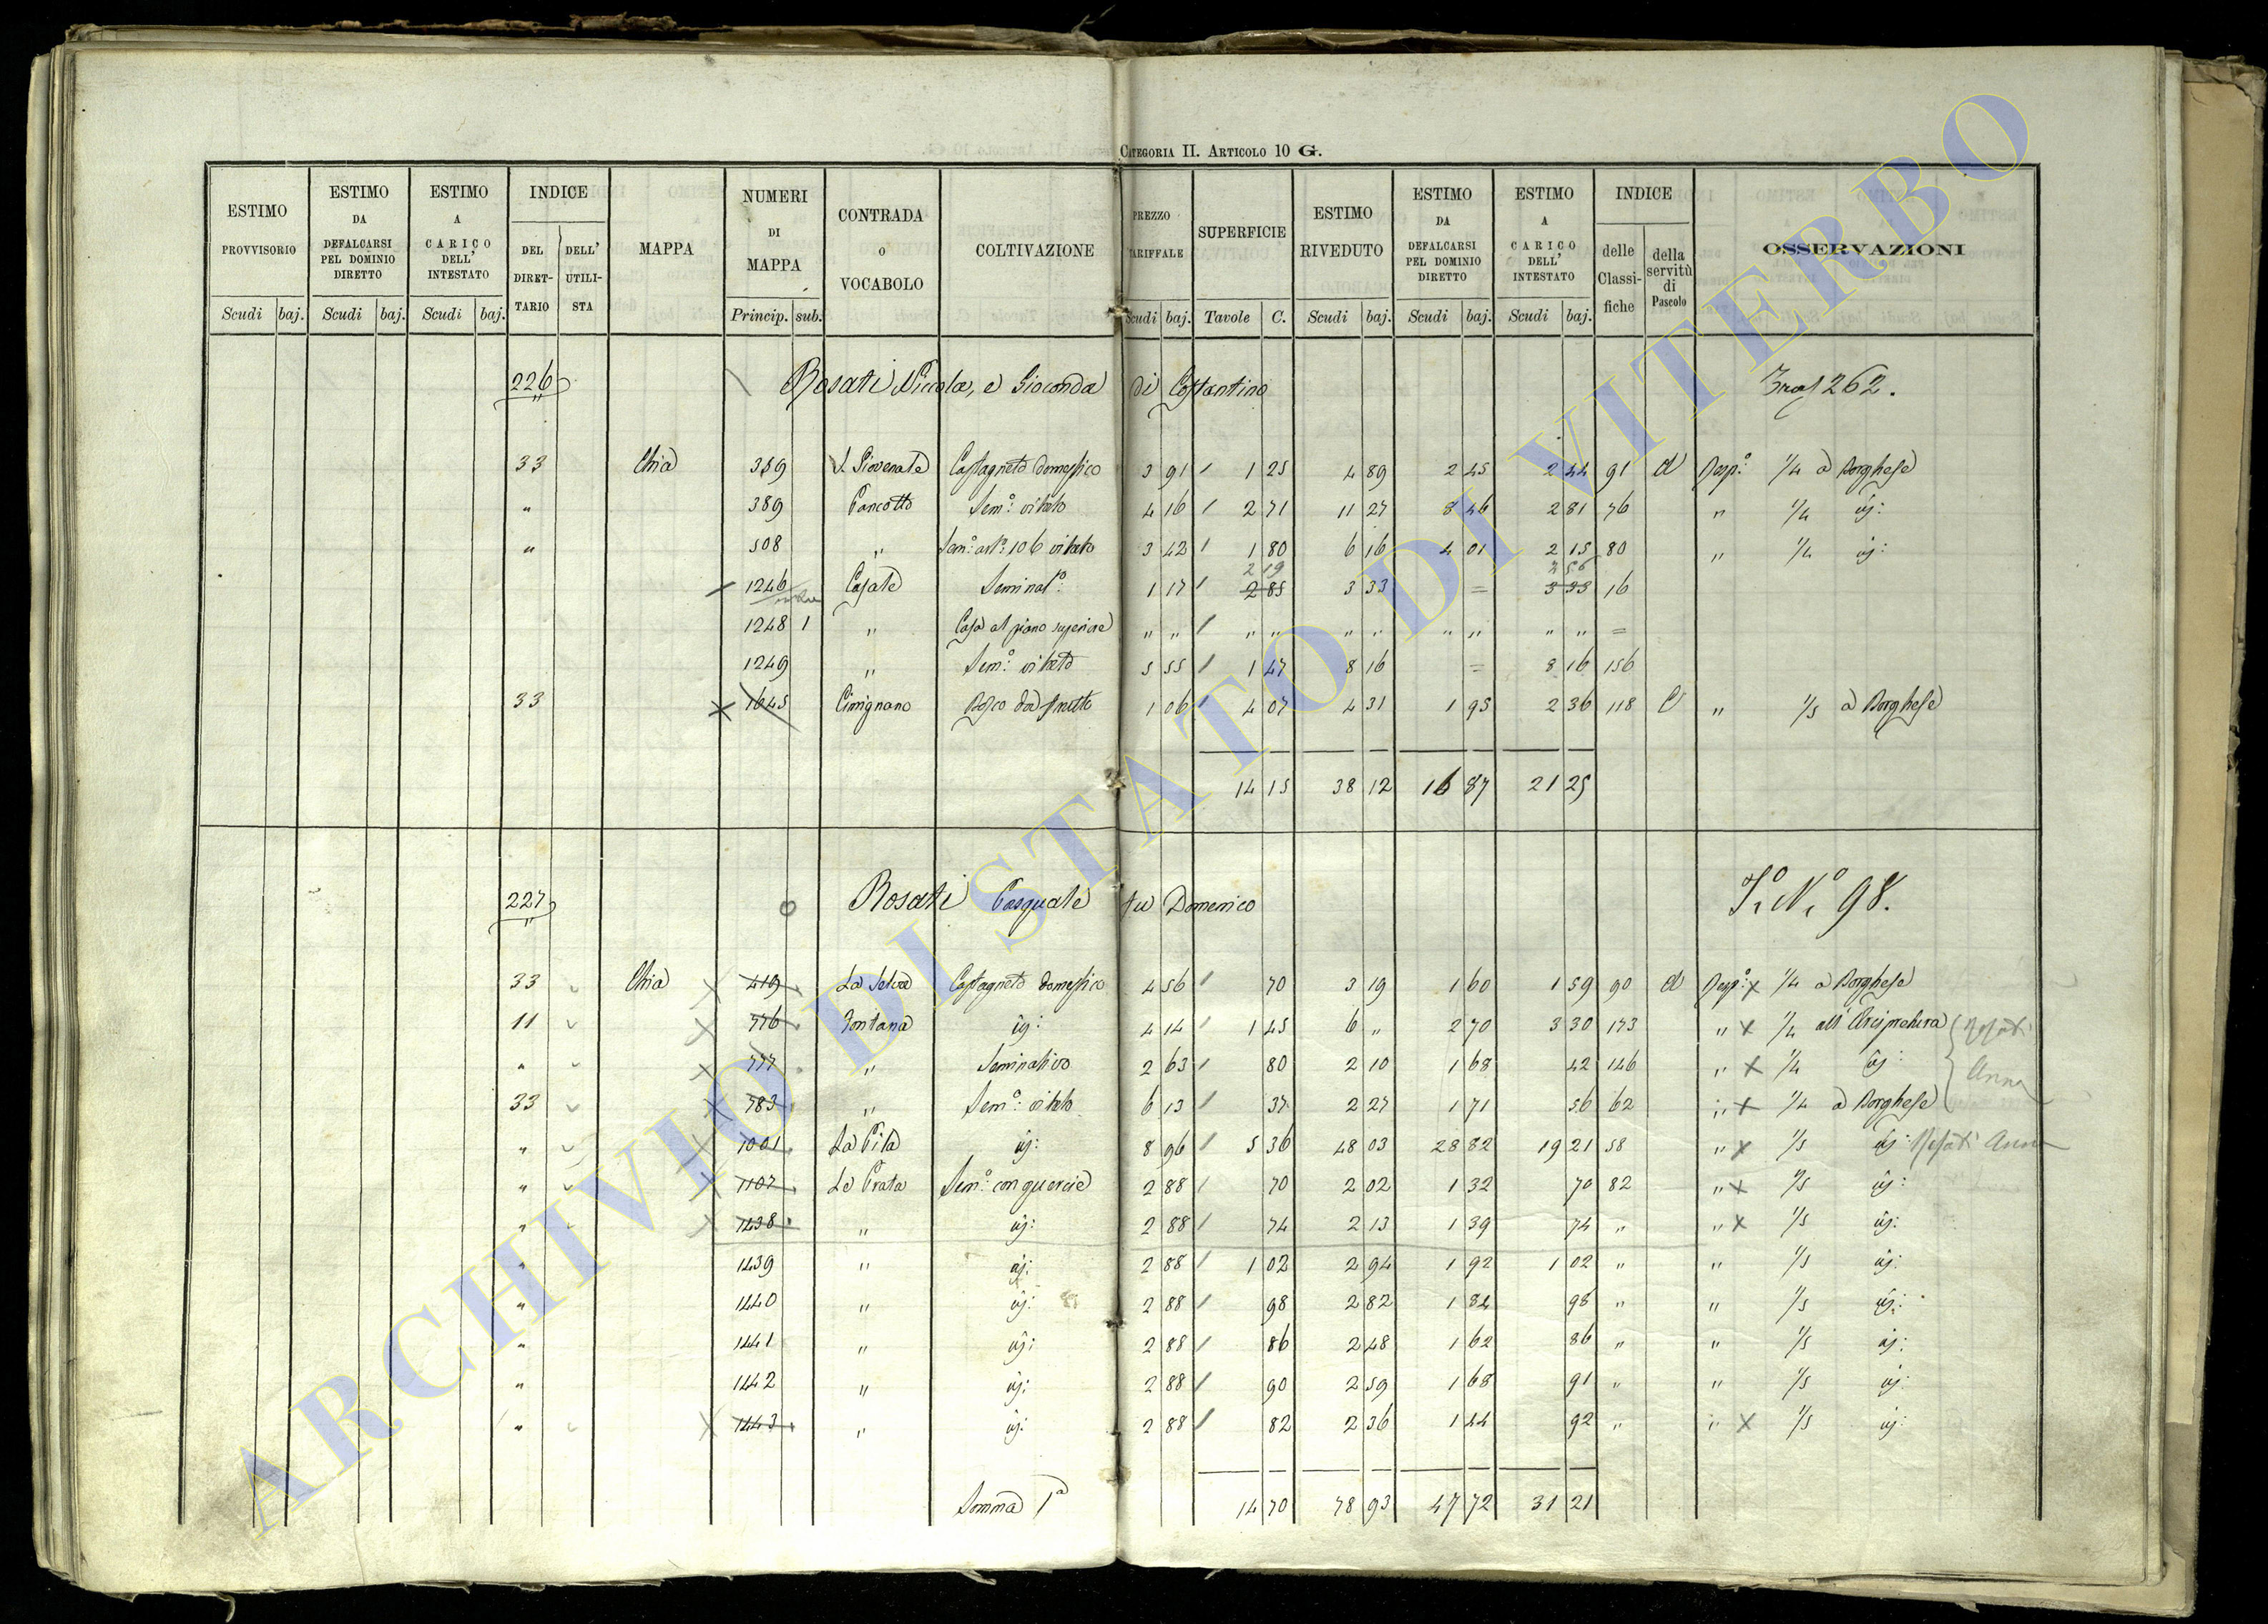 CATEGORIA II. ARTICOLO 10 G.
ESTIMO PROVVISORIO Scudi baj. ESTIMO DA DEFALCARSI PEL DOMINIO DIRETTO Scudi baj. ESTIMO A CARICO DELL' INTESTATO Scudi baj. INDICE DEL DIRETTARIO DELL' UTILISTA MAPPA NUMERI DI MAPPA Princip. sub. CONTRADA o VOCABOLO COLTIVAZIONE PREZZO TARIFFALE Scudi baj. SUPERFICIE Tavole C. ESTIMO RIVEDUTO Scudi baj. ESTIMO DA DEFALCARSI PEL DOMINIO DIRETTO Scudi baj. ESTIMO A CARICO DELL' INTESTATO Scudi baj. INDICE delle Classifiche della servitù di Pascolo OSSERVAZIONI
226 Rosati Niccola, e Gioconda di Costantino 262.
33 Chia 359 S. Giovenale Castagneto domestico 3 91 1 25 4 89 2 45 2 44 91 d Resp.e 1/4 a Borghese
" 389 Pancotto Sem.o vitato 4 16 2 71 11 27 8 46 2 81 76 " 1/4 id:
" 508 " Sem.o art.o 106 vitato 3 42 1 80 6 16 4 01 2 15 80 " 1/4 id:
2 19 2 56
1246 Casale Seminat.o 1 17 2 85 3 33 = 3 33 16
1248 1 " Casa al piano superiore " " " " " " " " " " =
1249 " Sem.o vitato 5 55 1 47 8 16 = 8 16 156
33 1645 Cimignano Bosco da frutto 1 06 4 07 4 31 1 95 2 36 118 " 1/5 a Borghese
14 15 38 12 16 87 21 25
227 Rosati Pasquale fu Domenico T. N.o 98.
33 Chia 419 La Selva Castagneto domestico 4 56 70 3 19 1 60 1 59 90 d Resp.e x 1/4 a Borghese
11 776 Fontana id: 4 14 1 45 6 " 2 70 3 30 173 " x 1/4 all' Arcipretura Rosati
" 777 " Seminativo 2 63 80 2 10 1 68 42 146 " x 1/4 id: Anna
33 783 " Sem.o vitato 6 13 37 2 27 1 71 56 62 " x 1/4 a Borghese
" 1001 La Pila id: 8 96 5 36 48 03 28 82 19 21 58 " x 1/5 id: Rosati Anna
" 1107 Le Prata Sem.o con quercie 2 88 70 2 02 1 32 70 82 " x 1/5 id:
" 1438 " id: 2 88 74 2 13 1 39 74 " " x 1/5 id:
" 1439 " id: 2 88 1 02 2 94 1 92 1 02 " " 1/5 id:
" 1440 " id: 2 88 98 2 82 1 84 98 " " 1/5 id:
" 1441 " id: 2 88 86 2 48 1 62 86 " " 1/5 id:
" 1442 " id: 2 88 90 2 59 1 68 91 " " 1/5 id:
" 1443 " id: 2 88 82 2 36 1 44 92 " " x 1/5 id:
Somma 1a 14 70 78 93 47 72 31 21
ARCHIVIO DI STATO DI VITERBO